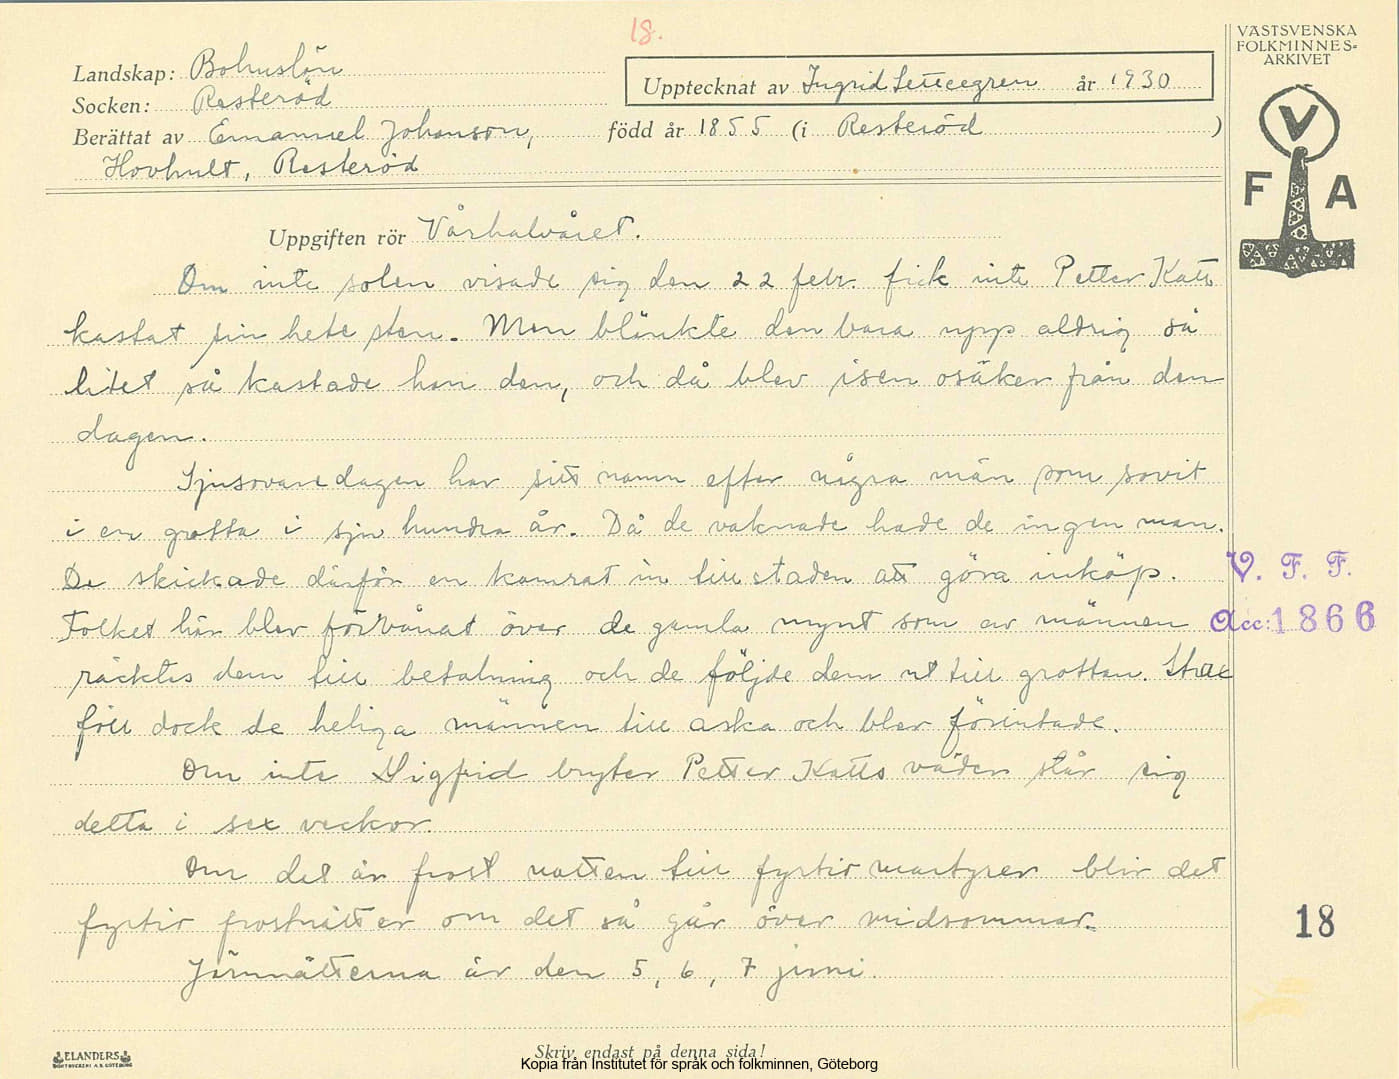 18.
VÄSTSVENSKA
FOLKMINNES-
ARKIVET
Landskap: Bohuslän
Upptecknat av Ingrid år 1930
Socken: Resteröd
Berättat av Emanuel Johanson, född år 1855 (i Resteröd )
Hovhult, Resteröd
V
F A
Uppgiften rör Vårhalvåret.
Om inte solen visade sig den 22 febr. fick inte Petter Katts
kastat sin hete sten. Men blänkte den bara upp aldrig så
litet så kastade han den, och då blev isen osäker från den
dagen.
Sjusovaredagen har sitt namn efter några män som sovit
i en grotta i sju hundra år. Då de vaknade hade de ingen man.
De skickade därför en kamrat in till staden att göra inköp.
V. F. F.
Folket här blev förvånat över de gamla mynt som av männen
Acc: 1866
räcktes dem till betalning och de följde dem ut till grottan. Strax
föll dock de heliga männen till aska och blev förintade.
Om inte Sigfrid bryter Petter Katts väder står sig
detta i sex veckor.
Om det är frost natten till fyrtio martyrer blir det
fyrtio frostnätter om det så går över midsommar.
18
Järnnätterna är den 5, 6, 7 juni.
ELANDERS
BOKTRYCKERI A.B. GÖTEBORG
Skriv endast på denna sida!
Kopia från Institutet för språk och folkminnen, Göteborg